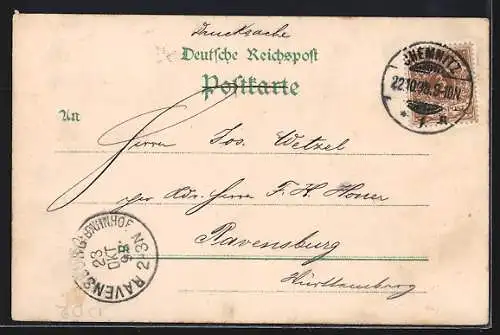 Drucksache
Deutsche Reichspost
Postkarte
CHEMNITZ
22.10.98. 9-10N.
* 1. n
An
Herrn Jos. Wetzel
per Adr. Herrn F. H. Honer
Ravensburg
Württemberg
RAVENSBURG BAHNHOF
23
OKT
98
2-3N